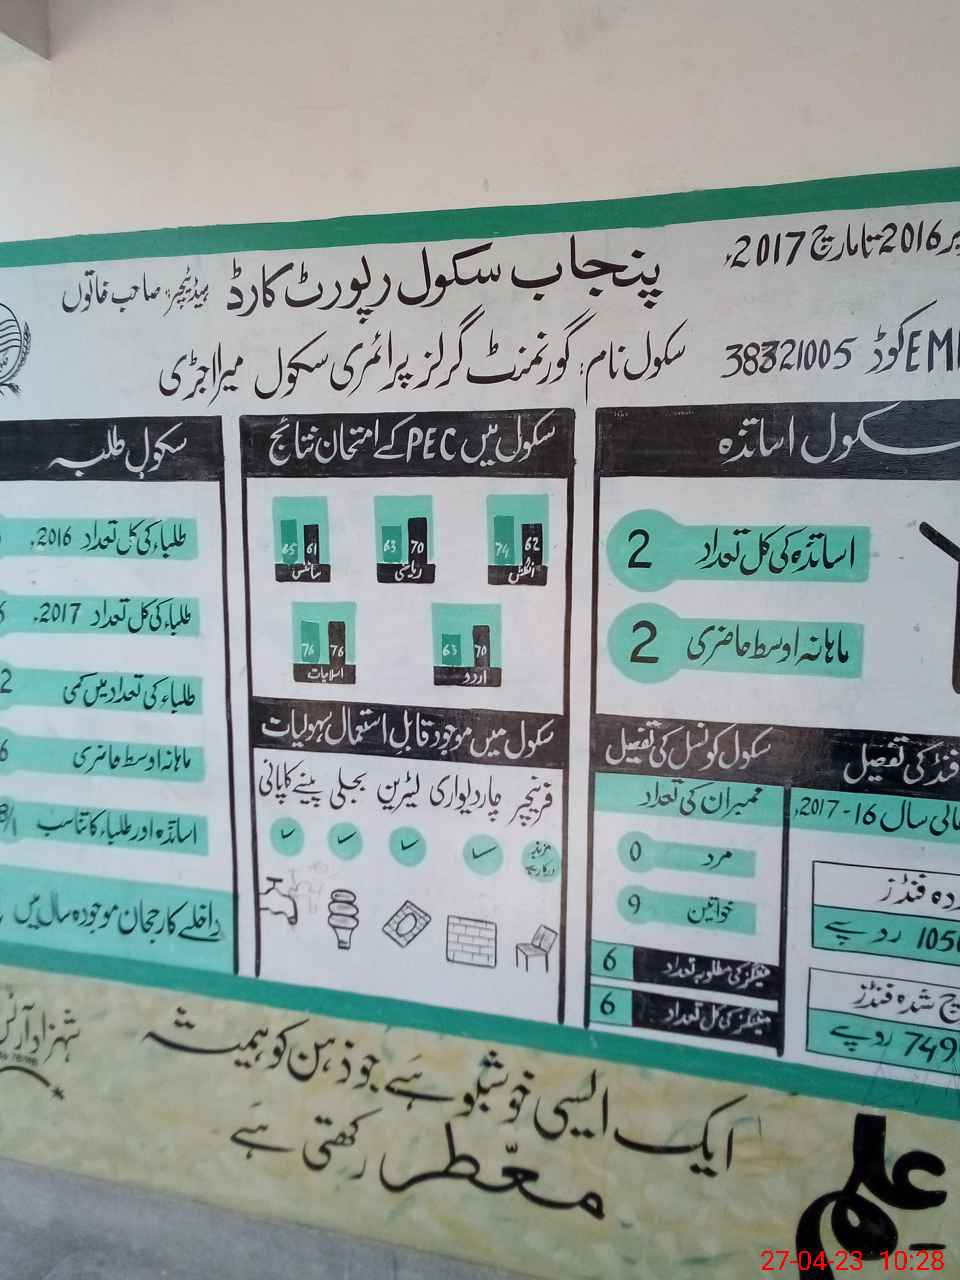 2016 تا مارچ 2017ء
پنجاب سکول رپورٹ کارڈ
ہیڈ ٹیچر: صاحب خاتون
کوڈ 38321005
سکول نام: گورنمنٹ گرلز پرائمری سکول میرا جڑی
سکول اساتذہ
اساتذہ کی کل تعداد 2
ماہانہ اوسط حاضری 2
سکول میں PEC کے امتحان نتائج
74 62 انگلش
63 70 ریاضی
65 61 سائنس
63 70 اردو
76 76 اسلامیات
سکول طلبہ
طلباء کی کل تعداد 2016ء
طلباء کی کل تعداد 2017ء
طلباء کی تعداد میں کمی
ماہانہ اوسط حاضری
اساتذہ اور طلباء کا تناسب
داخلے کا رجحان موجودہ سال میں
سکول میں موجود قابل استعمال سہولیات
فرنیچر
مزید درکار ہے
چار دیواری
لیٹرین
بجلی
پینے کا پانی
سکول کونسل کی تفصیل
ممبران کی تعداد
مرد 0
خواتین 9
میٹنگز کی مطلوبہ تعداد 6
میٹنگز کی کل تعداد 6
فنڈ کی تفصیل
مالی سال 16-2017ء
فنڈز
روپے
شدہ فنڈز
روپے
علم
ایک ایسی خوشبو ہے جو ذہن کو ہمیشہ
معطر رکھتی ہے
شہزاد آرٹس
27-04-23 10:28